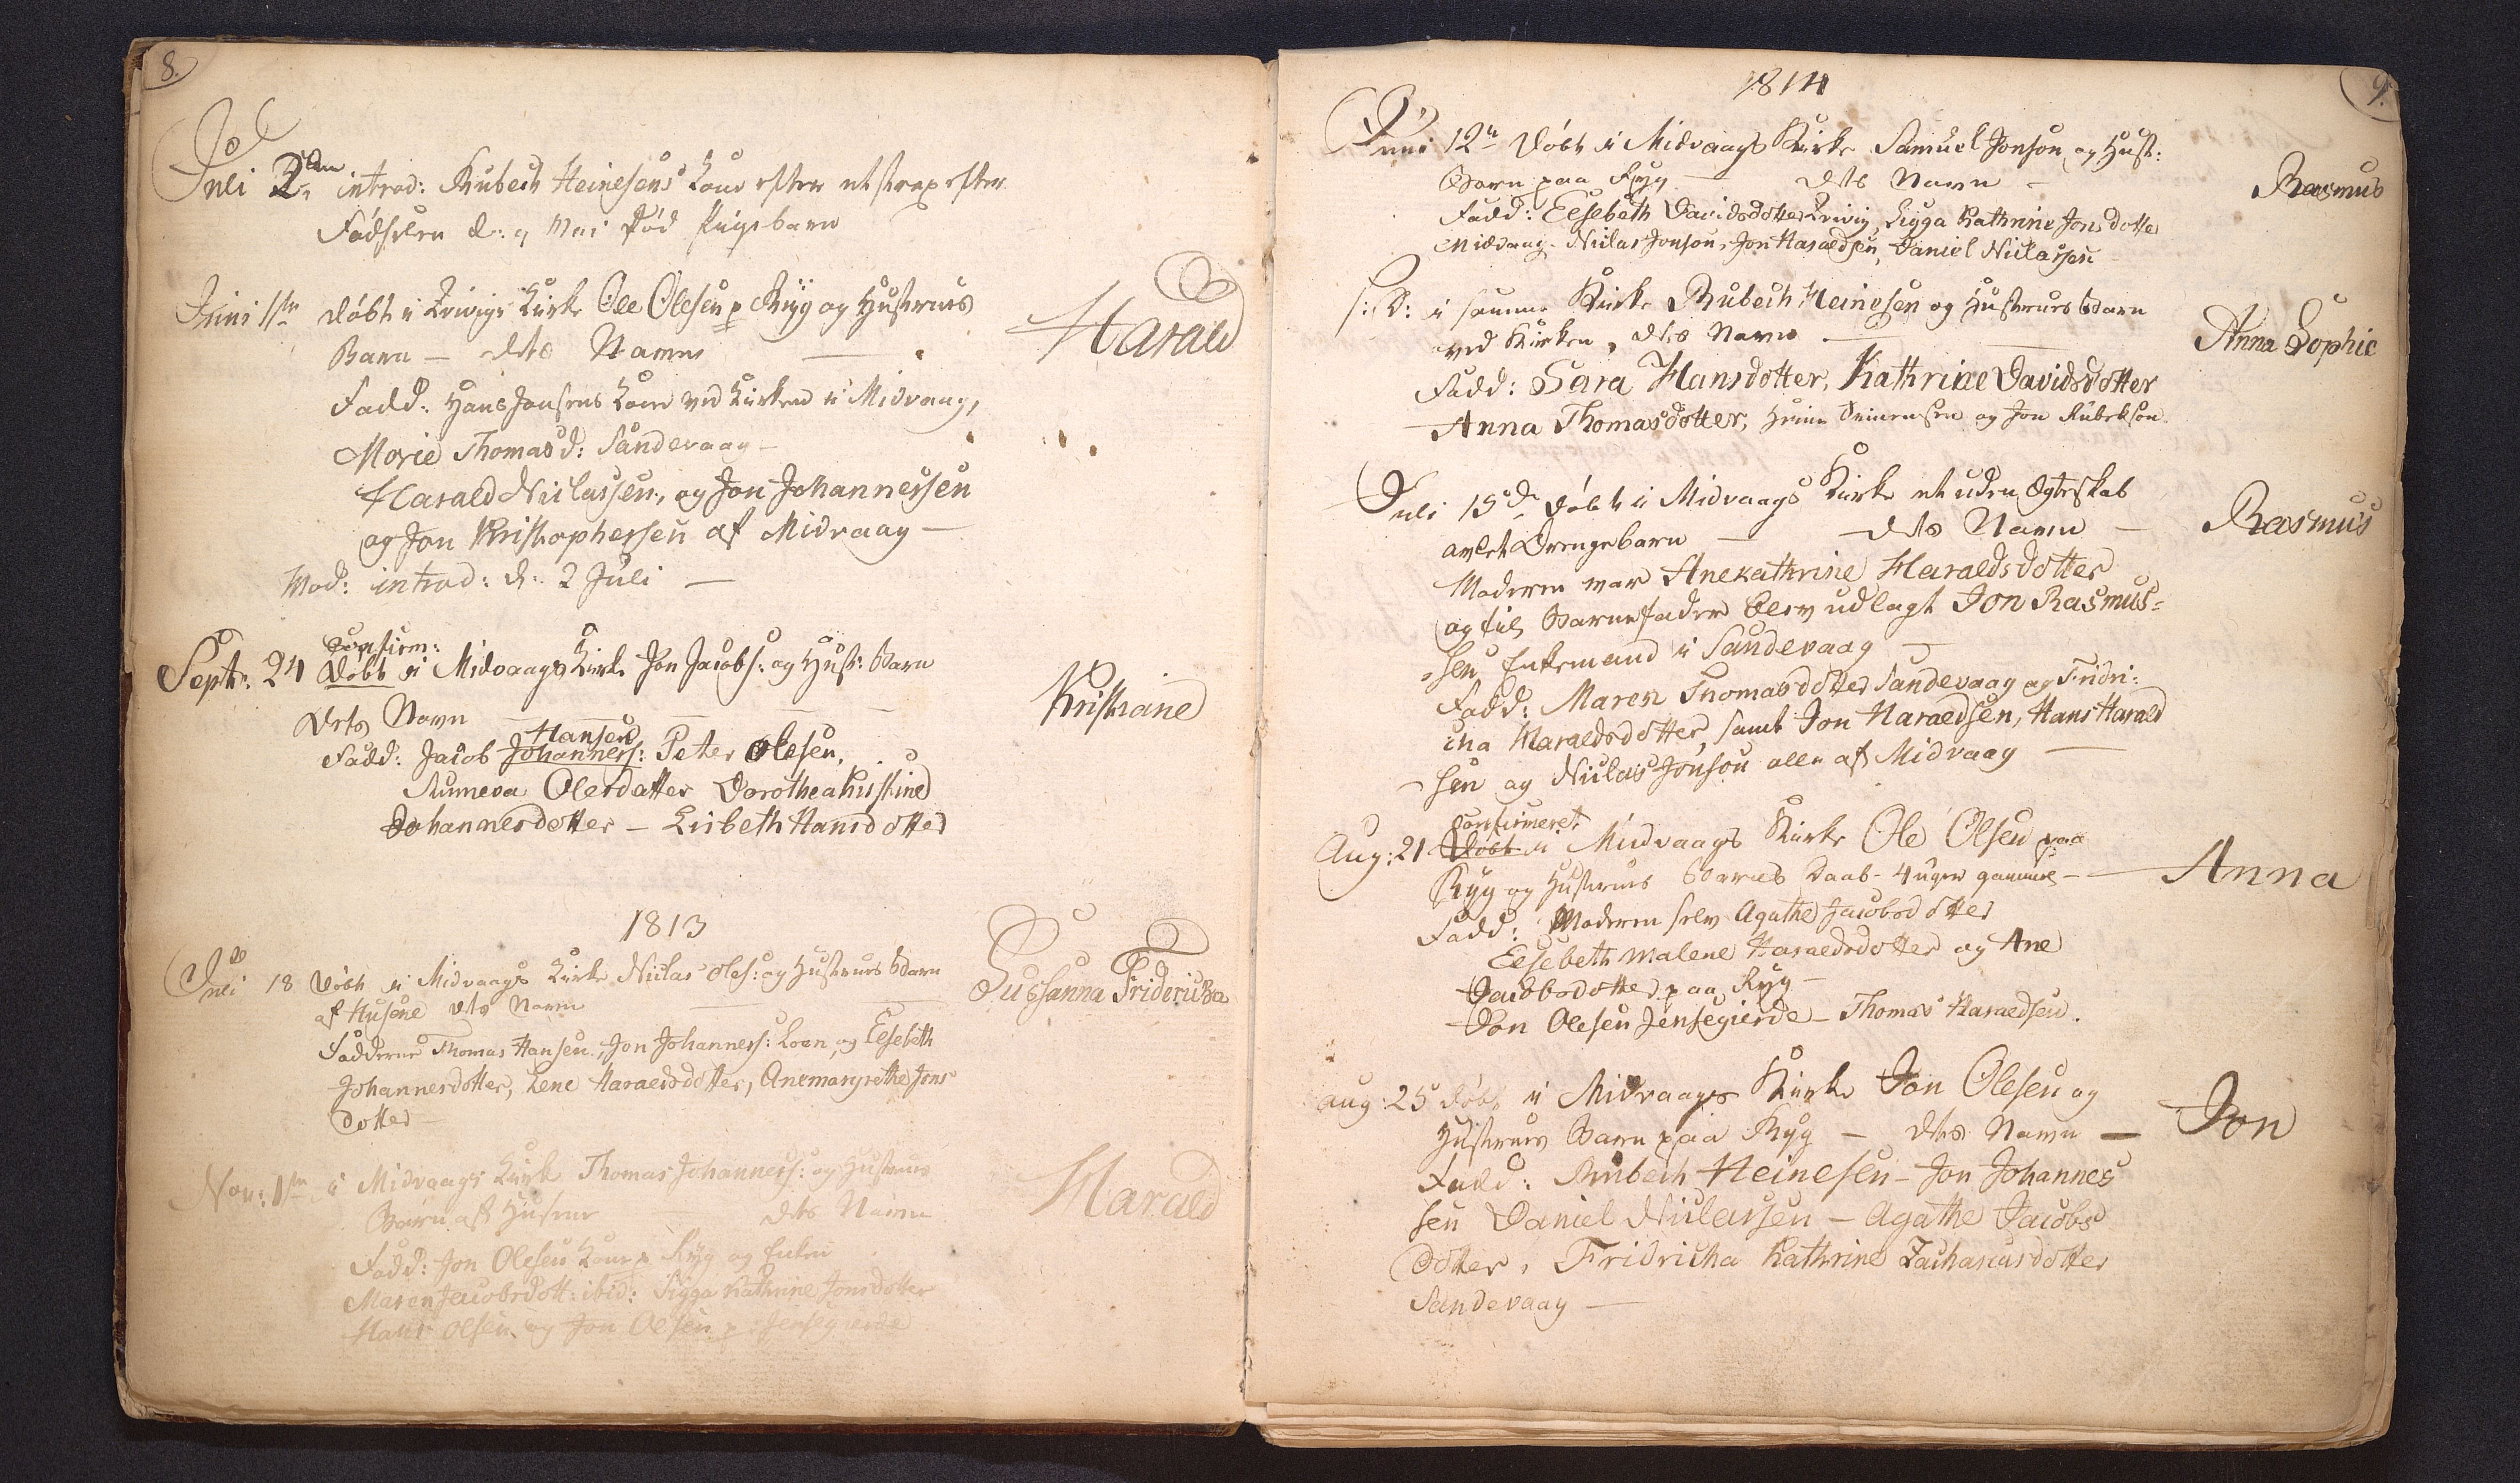 8.
Juli 2den introd: Rubech Heinesens Kone efter et strax efter
Fødselen d: 9 Mai død Pigebarn
Juni 11te døbt i Qvivigs Kirke Ole Olesen p Ryg og Hustrues
Barn — dets Navn — Harald
Fadd: Hans Jonsens Kone ved Kirken i Midvaag,
Marie Thomasd: Sandevaag —
Harald Niclassen, og Jon Johannessen
og Jon Kristophersen af Midvaag —
Mod: introd: d: 2 Juli —
confirm:
Septr. 24 Døbt i Midvaags Kirke Jon Jacobs: og Hust: Barn
Dets Navn — Kristiane
Hansen
Fadd: Jacob Johanness: Peter Olesen,
Sunneva Olesdatter Dorothea Kirstine
Johannesdotter — Lisbeth Hansdotter
1813
Juli 18 Døbt i Midvaags Kirke Niclas Oles: og Hustrues Barn
af Husene dets Navn — Sussanna Fridericka
Fadderne Thomas Hansen, Jon Johanness: Kone, og Elsebeth
Johannesdotter, Lene Haraldsdotter, Anemargrethe Jons
dotter —
Nov: 1te i Midvaags Kirke Thomas Johanness: og Hustrues
Barn af Husene dets Navn Harald
Fadd: Jon Olesens Kone p Ryg og Enken
Maren Jacobsdott: ibid: Sigga Kathrine Jonsdotter
Hans Olsen og Jon Olsen p Jensegierde
9.
1814
Juni 12te Døbt i Midvaags Kirke Samuel Jonson og Hust:
Barn paa Ryg — dets Navn — Rasmus
Fadd: Elsebeth Davidsdotter Qvivig, Sigga Kathrine Jonsdotter
Midvaag. Niclas Jonson, Jon Haraldsen, Daniel Niclassen
S: D: i samme Kirke Rubech Heinesen og Hustrues Barn
ved Kirken, dets Navn — Anna Sophie
Fadd: Sara Hansdotter, Kathrine Davidsdotter
Anna Thomasdotter, Heine Heinesen og Jon Rubeksen
Juli 15de Døbt i Midvaags Kirke et uden Ægteskab
avlet Drengebarn — dets Navn — Rasmus
Moderen var Anekathrine Haraldsdotter
og til Barnefader blev udlagt Jon Rasmus=
=sen Enkemand i Sandevaag —
Fadd: Maren Thomasdotter Sandevaag og Fridri:
cha Haraldsdotter, samt Jon Haraldsen, Hans Harald
sen og Niclas Jonson alle af Midvaag —
confirmeret
Aug: 21 Døbt i Midvaags Kirke Ole Olsen paa
Ryg og Hustrues Barns Daab — 4 uger gammel — Anna
Fadd: Moderen selv Agathe Jacobsdotter
Elsebeth Malene Haraldsdotter og Ane
Jacobsdotter paa Ryg —
Jon Olesen Jensegierde — Thomas Haraldsen.
Aug: 25 døbt i Midvaags Kirke Jon Olesen og
Hustrues Barn paa Ryg — dets Navn — Jon
Fadd: Rubech Heinesen — Jon Johannes
sen Daniel Niclassen — Agathe Jacobs
dotter, Fridricha Kathrine Zachariasdotter
Sandevaag —